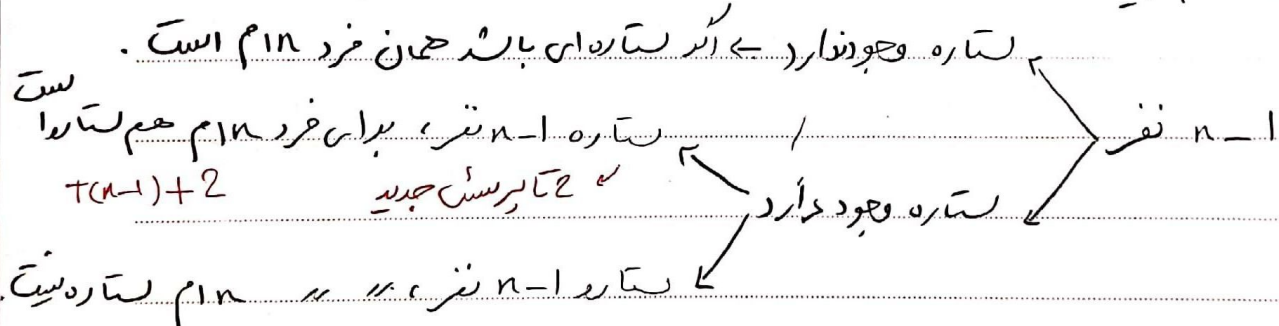 ستاره وجود ندارد ← اگر ستاره‌ای باشد همان فرد nام است.
n-1 نفر
ستاره n-1 نفر، برای فرد nام هم ستاره است
ستاره وجود دارد
2 تا پرسش جدید T(n-1)+2
ستاره n-1 نفر، 〃 〃 nام ستاره نیست.